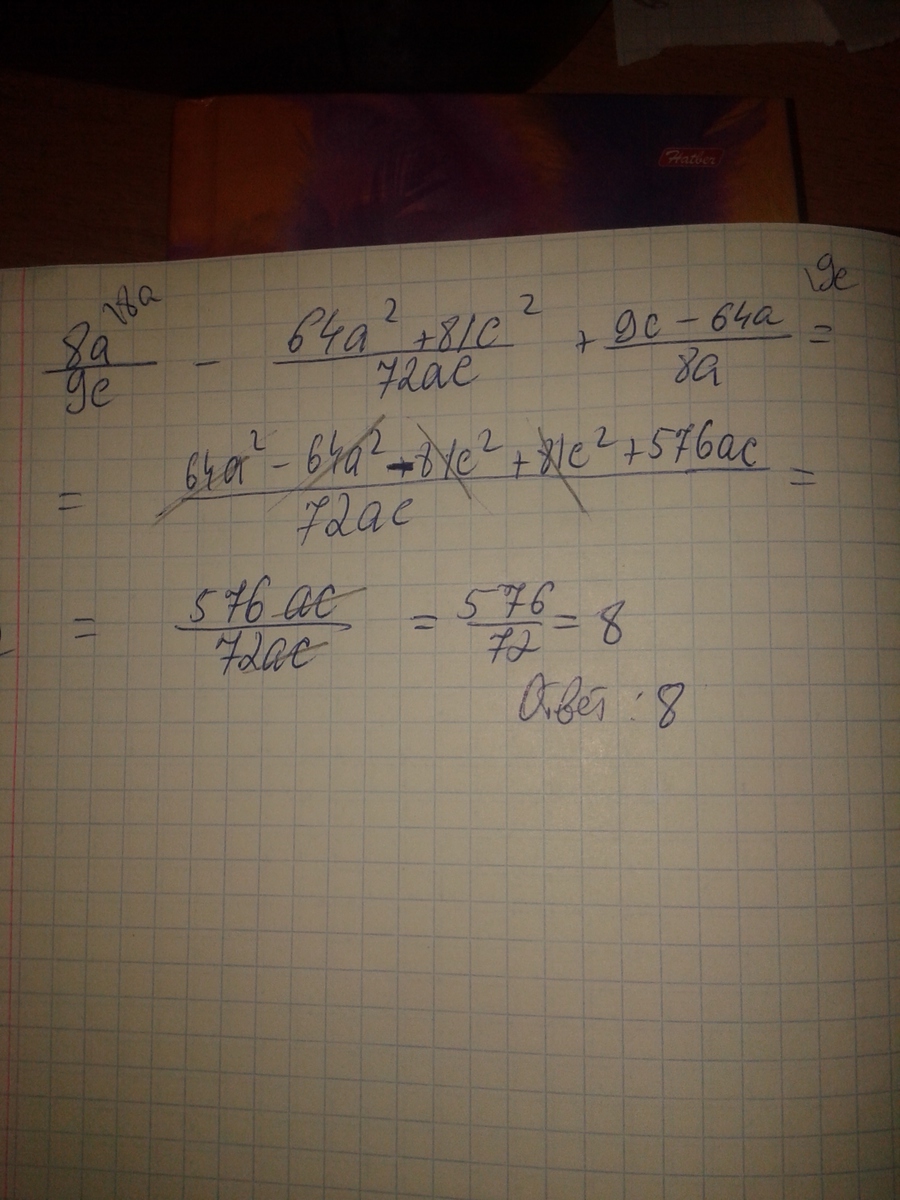 Hatber
8a\8a/9c − 64a²+81c²/72ac + 9c−64a/8a \9c =
= 64a²−64a²−81c²+81c²+576ac/72ac =
= 576ac/72ac = 576/72 = 8
Ответ: 8